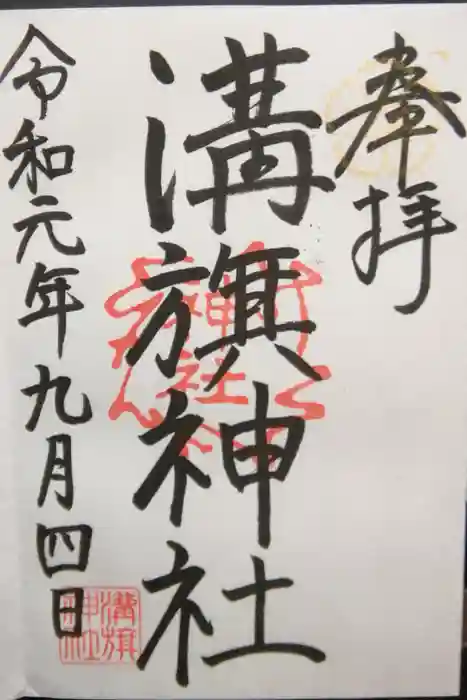 奉拝
溝旗神社
令和元年九月四日
溝旗
神社